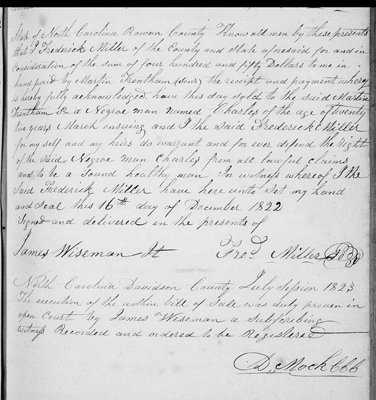 State of North Carolina Rowan County Know all men by these presents
that I Frederick Miller of the County and State aforesaid for and in
consideration of the sum of four hundred and fifty Dollars to me in
hand paid by Martin Frentham (Senr) the receipt and payment whereof
is hereby fully acknowledged have this day sold to the said Martin
Frentham Sr a Negroe man named Charles of the age of twenty
two years March ensuing and I the said Frederick Miller
for my self and my heirs do warrant and for ever defend the right
of the said Negroe man Charles from all lawful claims
and to be a sound healthy man In witness whereof I the
said Frederick Miller have here unto set my hand
and seal this 16th day of December 1822
Signed and delivered in the presents of
James Wiseman Jt Fred. Miller
North Carolina Davidson County July session 1823
The execution of the within bill of sale was duly proven in
open Court by James Wiseman a subscribing
witness Recorded and ordered to be Registered
D. Mock CCC